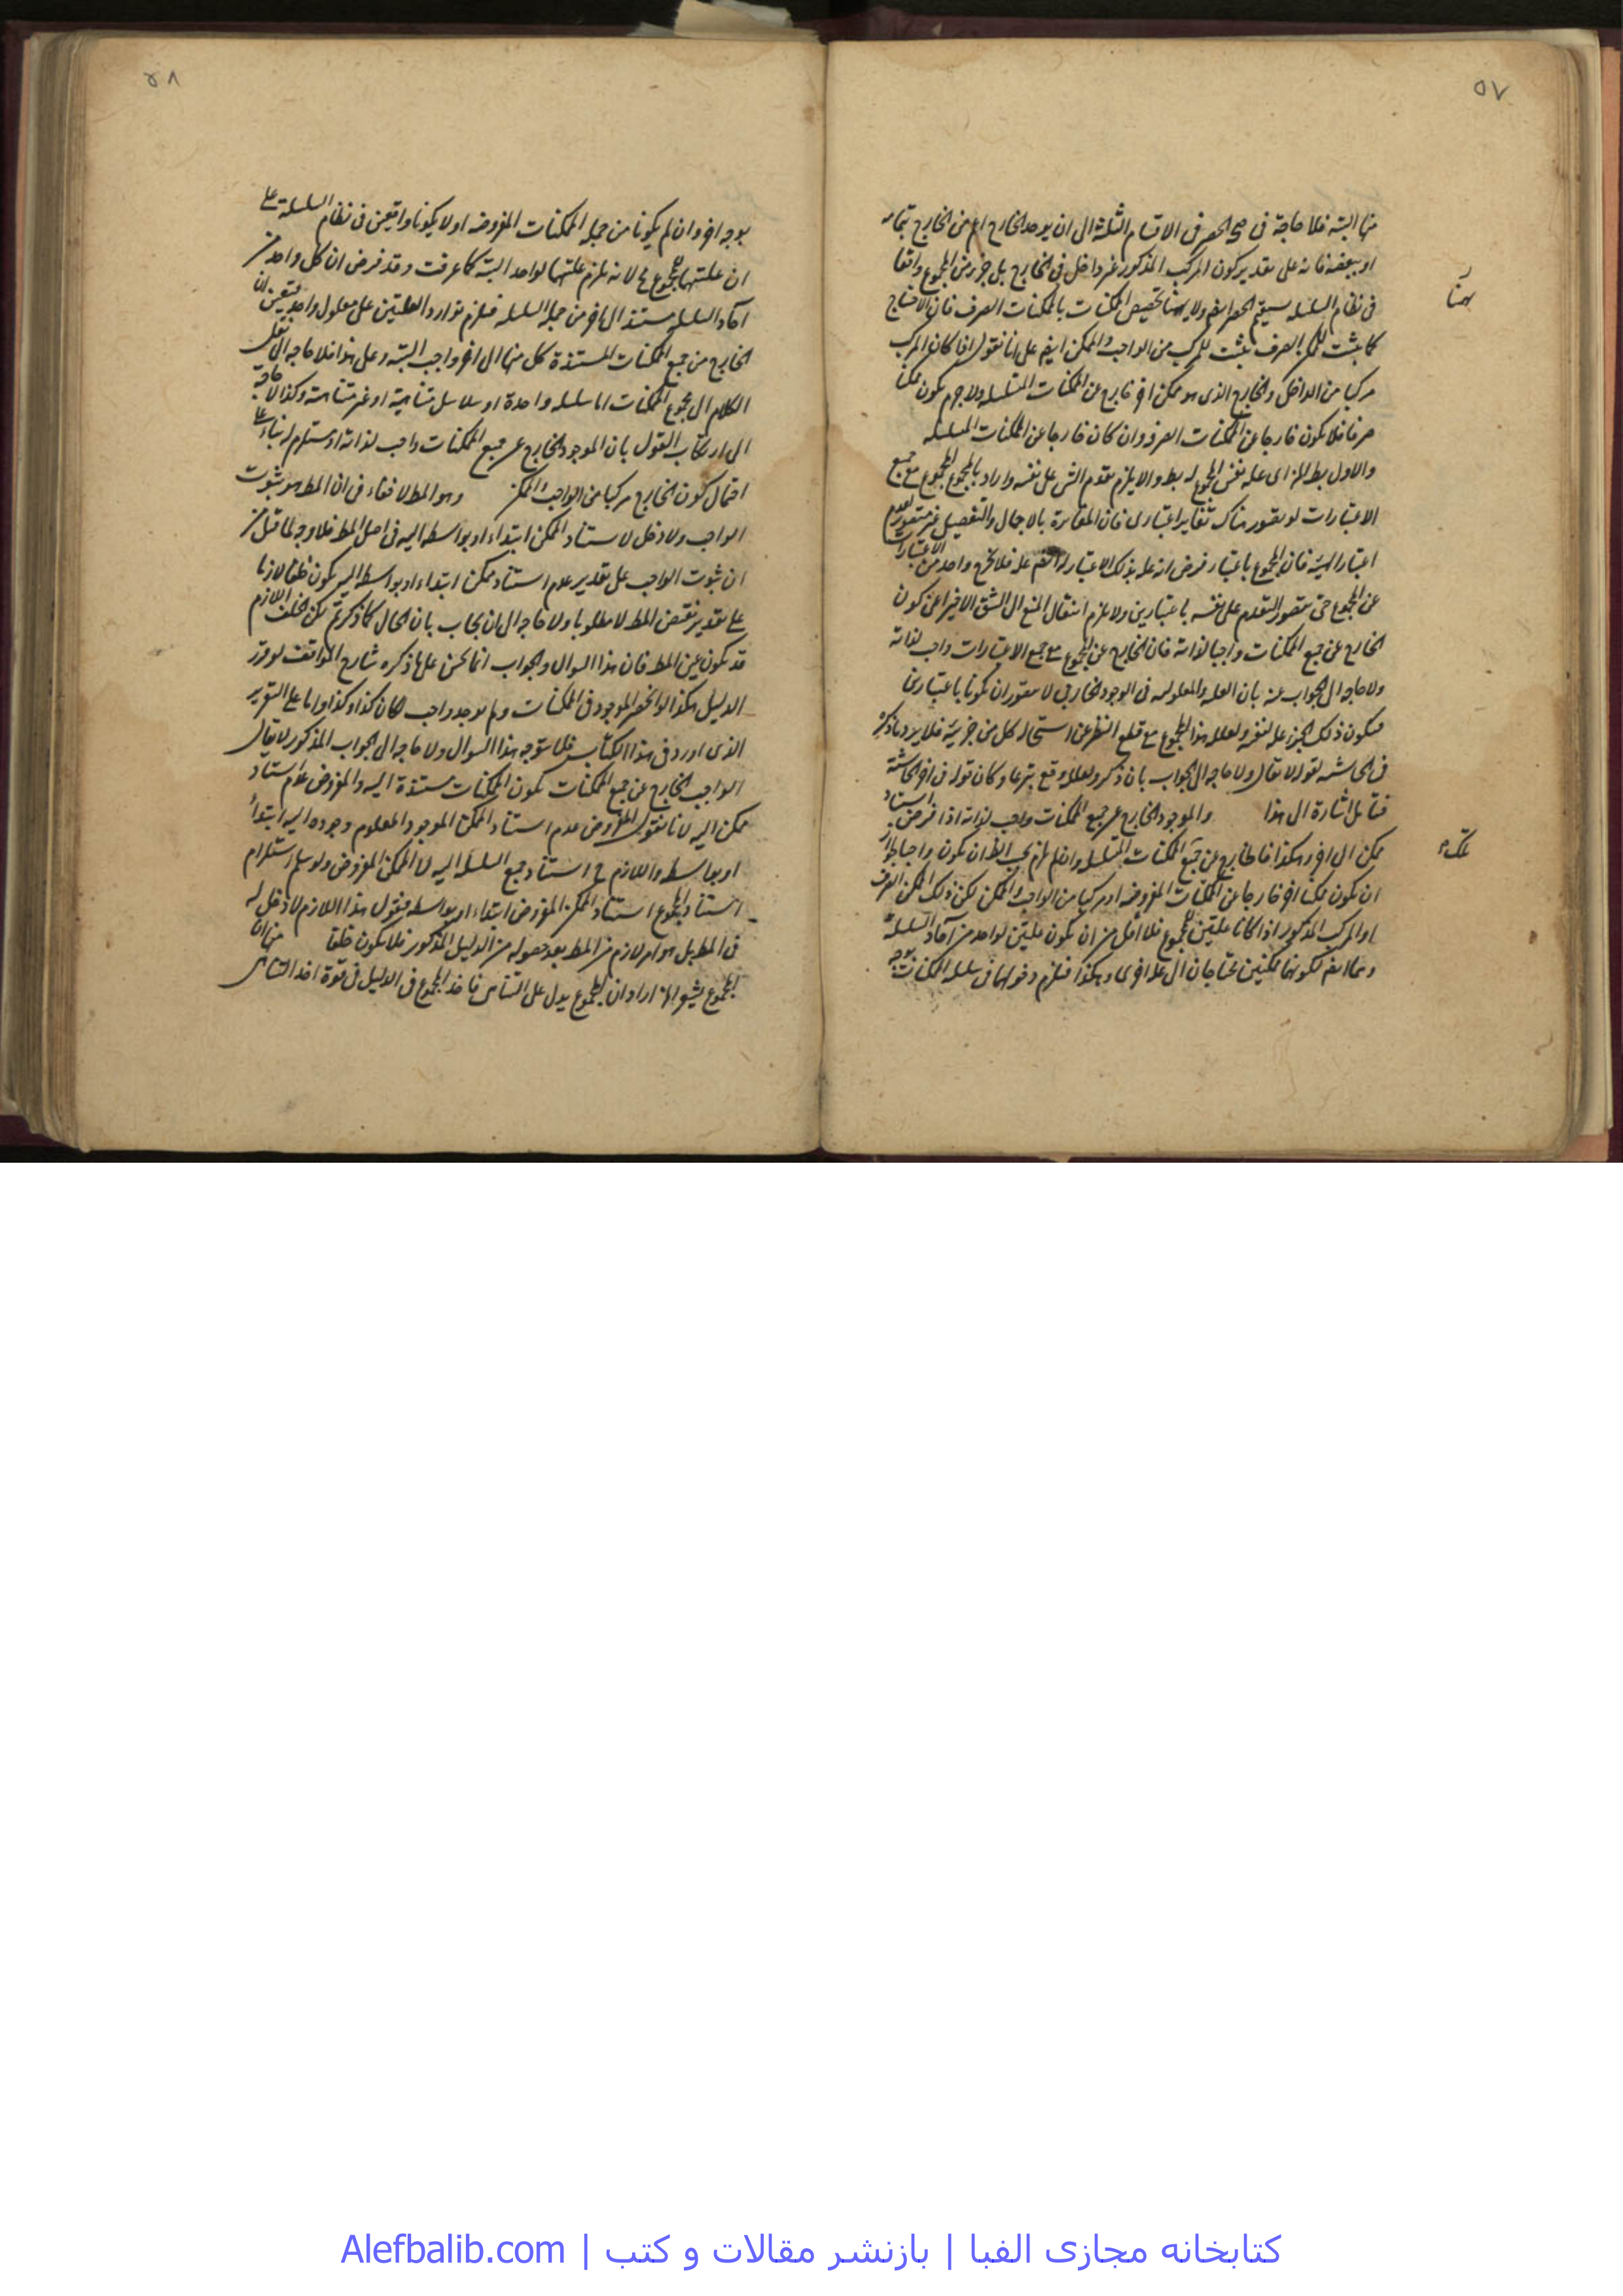 ٥٧
منها البتة فلا حاجة فى صحة الحصر فى الاقسام الثلثة الى ان يوخذ الخارج اعم من الخارج بتمامه
او ببعضه فانه على تقدير كون المركب المذكور غير داخل فى الخارج بل جزء من المجموع واقعا
فى نظام السلسلة يستقيم الحصر ايضا ولا تخصيص الممكنات بالممكنات الصرف فان الاحتياج
كما يثبت للممكن الصرف يثبت للمركب من الواجب والممكن ايضا على انا نقول اذا كان المركب
مركبا من الداخل والخارج الذى هو ممكن اخر خارج عن الممكنات المتسلسلة ولا جرم يكون ممكنا
صرفا فلا يكون خارجا عن الممكنات الصرف وان كان خارجا عن الممكنات المتسلسلة
والاول بط اى علة نفس المجموع له بط والا يلزم تقدم الشى على نفسه واراد بالمجموع المجموع مع جميع
الاعتبارات لو تصور هناك تغاير اعتبارى فان المغايرة بالاجمال والتفصيل غير متصور لعدم
اعتبار الهيئة فان المجموع باعتبار فرض انه علة بذلك الاعتبار فلا يخرج واحد من الاعتبارات
عن المجموع حتى يتصور التقدم على نفسه باعتبارين ولا يلزم انتقال المنع الى الشق الاخير اعنى كون
الخارج عن جميع الممكنات واجبا لذاته فان الخارج عن المجموع مع جميع الاعتبارات واجب لذاته
ولا حاجة الى الجواب عنه بان العلة والمعلولية فى الوجود الخارجى لا يتصور ان يكونا باعتبارين
فيكون ذلك الجزء علة لنفسه ولعلله هذا المجموع مع قطع النظر عن استحالة كل من جزئية فلا يرد ما ذكره
فى الحاشية لقوله لا يقال ولا حاجة الى الجواب بان ذكر ولعلله وقع تبرعا وكان قوله فى اخر الحاشية
فتأمل اشارة الى هذا والموجود الخارج عن جميع الممكنات واجب لذاته اذا فرض استناد
ممكن الى اخر وهكذا فالخارج عن جميع الممكنات المتسلسلة وان لم يلزم بحسب الظ ان يكون واجبا لجواز
ان يكون ممكنا اخر خارجا عن الممكنات المفروضة او مركبا من الواجب والممكن لكن ذلك الممكن الصرف
او المركب المذكور اذا كانا علتين للمجموع فلا اقل من ان يكون علتين لواحد من آحاد السلسلة
وهما ايضا لكونهما ممكنين محتاجان الى علة اخرى وهكذا فيلزم دخولهما فى سلسلة الممكنات بوجه
٥٨
بوجه اخر وان لم يكونا من جملة الممكنات المفروضة اولا يكونا واقعين فى نظام السلسلة على
ان علتهما للمجموع ح لانه يلزم علتهما لواحد البتة كما عرفت وقد فرض ان كل واحد من
آحاد السلسلة مستند الى اخر من جملة السلسلة فيلزم توارد العلتين على معلول واحد فيتعين ان
الخارج من جميع الممكنات المستندة كل منها الى اخر واجب البتة وعلى هذا فلا حاجة الى نقل
الكلام الى مجموع الممكنات اما سلسلة واحدة او سلاسل متناهية او غير متناهية وكذا لا حاجة
الى ارتكاب القول بان الموجود الخارج عن جميع الممكنات واجب لذاته او مستلزم له بناء على
احتمال كون الخارج مركبا من الواجب والممكن وهو المط لا خفاء فى ان المط هو ثبوت
الواجب ولا دخل لاستناد الممكن ابتداء او بواسطة اليه فى اصل المط فلا وجه لما قيل من
ان ثبوت الواجب على تقدير عدم استناد ممكن ابتداء او بواسطة اليه يكون خلفا لازما
على تقدير نقيض المط لا مطلوبا ولا حاجة الى ان يجاب بان الحال كما ذكرتم لكن الخلف اللازم
قد يكون عين المط فان هذا السوال والجواب انما يحسن على ما ذكره شارح المواقف لو قرر
الدليل هكذا لو انحصر الموجود فى الممكنات ولم يوجد واجب لكان كذا وكذا واما على التقرير
الذى اورد فى هذا الكتاب فلا يتوجه هذا السوال ولا حاجة الى الجواب المذكور لا يقال
الواجب الخارج عن جميع الممكنات يكون الممكنات مستندة اليه والمفروض عدم استناد
ممكن اليه لانا نقول المفروض عدم استناد الممكن الموجود المعلوم وجوده اليه ابتداء
او بواسطة واللازم ح استناد جميع السلسلة اليه لا الممكن المفروض ولو سلم استلزام
استناد المجموع استناد الممكن المفروض ابتداء او بواسطة فنقول هذا اللازم لا دخل له
فى المط بل هو امر لازم من المط بعد حصوله من الدليل المذكور فلا يكون خلفا منها ان
المجموع يشعر اراد ان المجموع يدل على التناهى فاخذ المجموع فى الدليل فى قوة اخذ التناهى
كتابخانه مجازى الفبا | بازنشر مقالات و كتب | Alefbalib.com